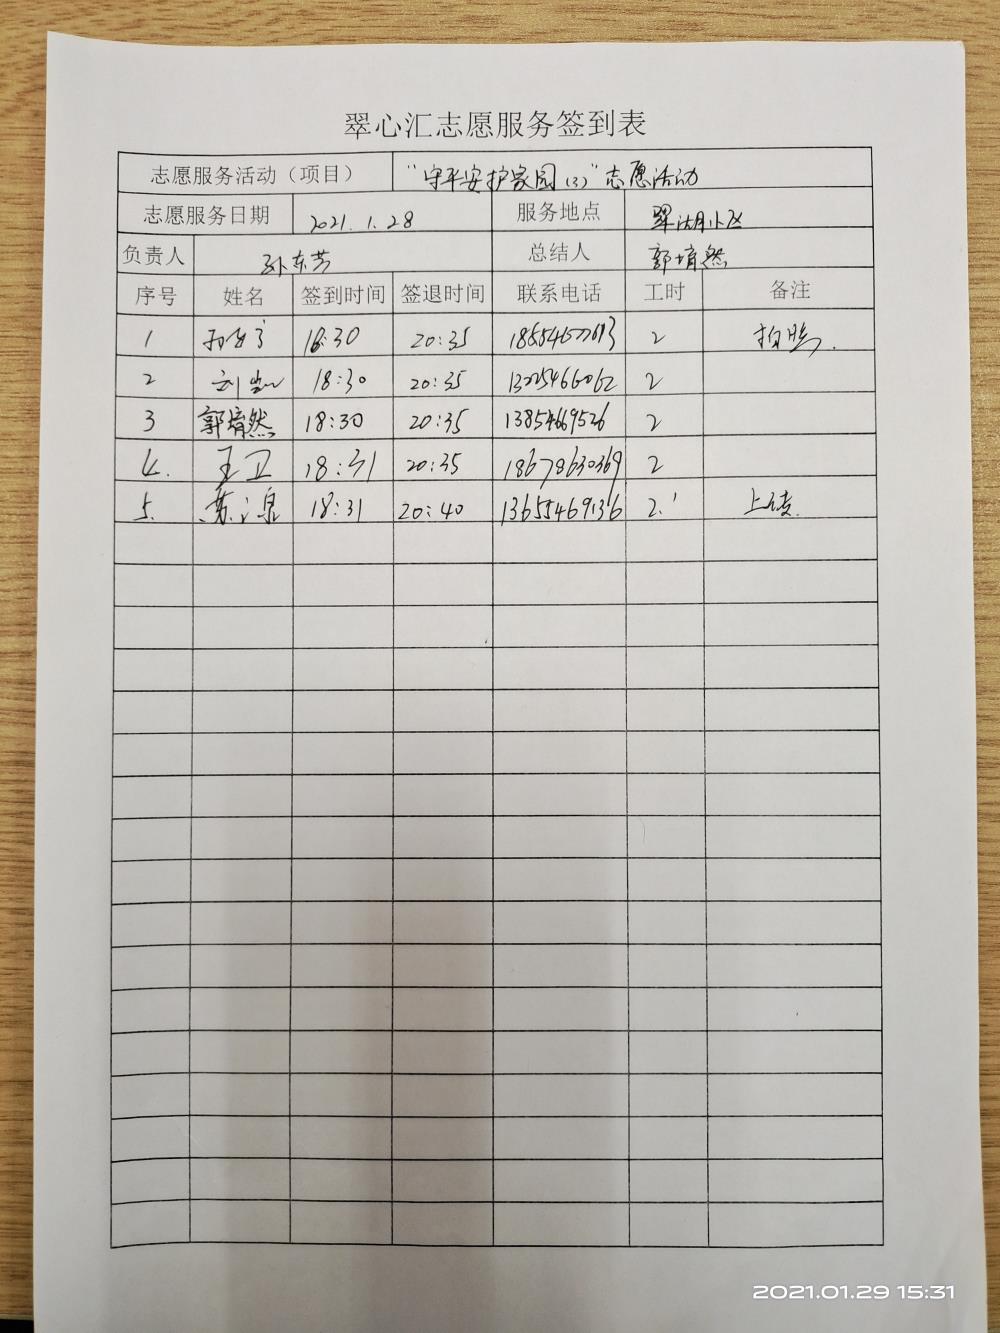 翠心汇志愿服务签到表
志愿服务活动（项目） “守平安护家园（3）”志愿活动
志愿服务日期 2021.1.28 服务地点 翠湖小区
负责人 孙东芳 总结人 郭堉然
序号 姓名 签到时间 签退时间 联系电话 工时 备注
1 18:30 20:35 2 拍照.
2 刘 18:30 20:35 1325466062 2
3 郭堉然 18:30 20:35 13854669526 2
4. 王卫 18:31 20:35 18678630369 2
5. 苏泉 18:31 20:40 13655469136 2. 上传.
2021.01.29 15:31